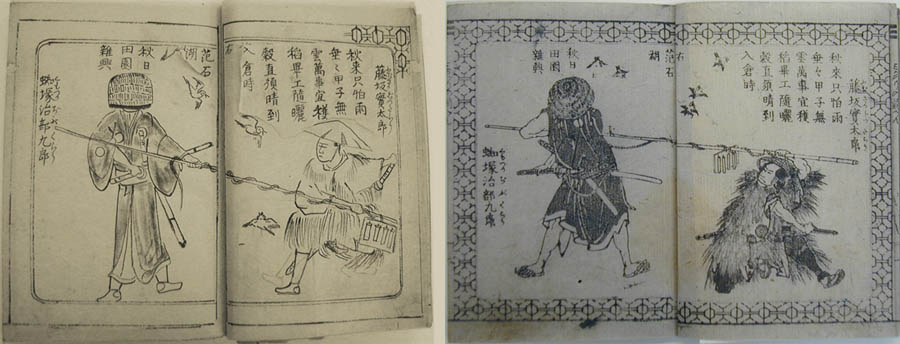 藤坂實太郎
秋來只怕雨
垂々甲子無
雲萬事宜穫
稻畢工隨曬
穀直須晴到
入倉時
右
范石
湖
秋日
田園
雜興
蜘塚治部九郎
藤坂實太郎
秋來只怕雨
垂々甲子無
雲萬事宜穫
稻畢工隨曬
穀直須晴到
入倉時
右
范石
湖
秋日
田園
雜興
蜘塚治部九郎